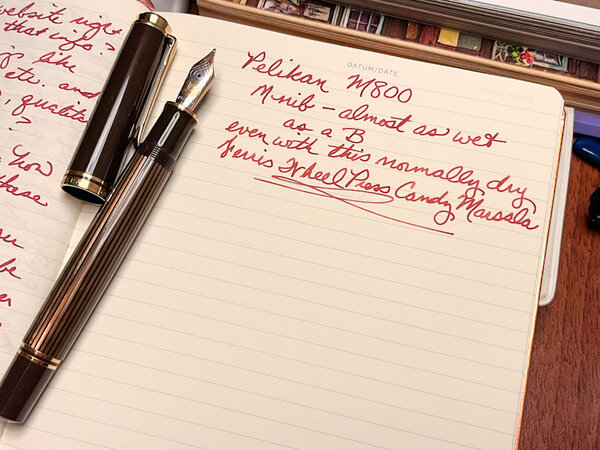 website
that info?
like
etc. and
?
how
be
DATUM/DATE
Pelikan M800
M-nib – almost as wet
as a B
even with this normally dry
Ferris Wheel Press Candy Marsala